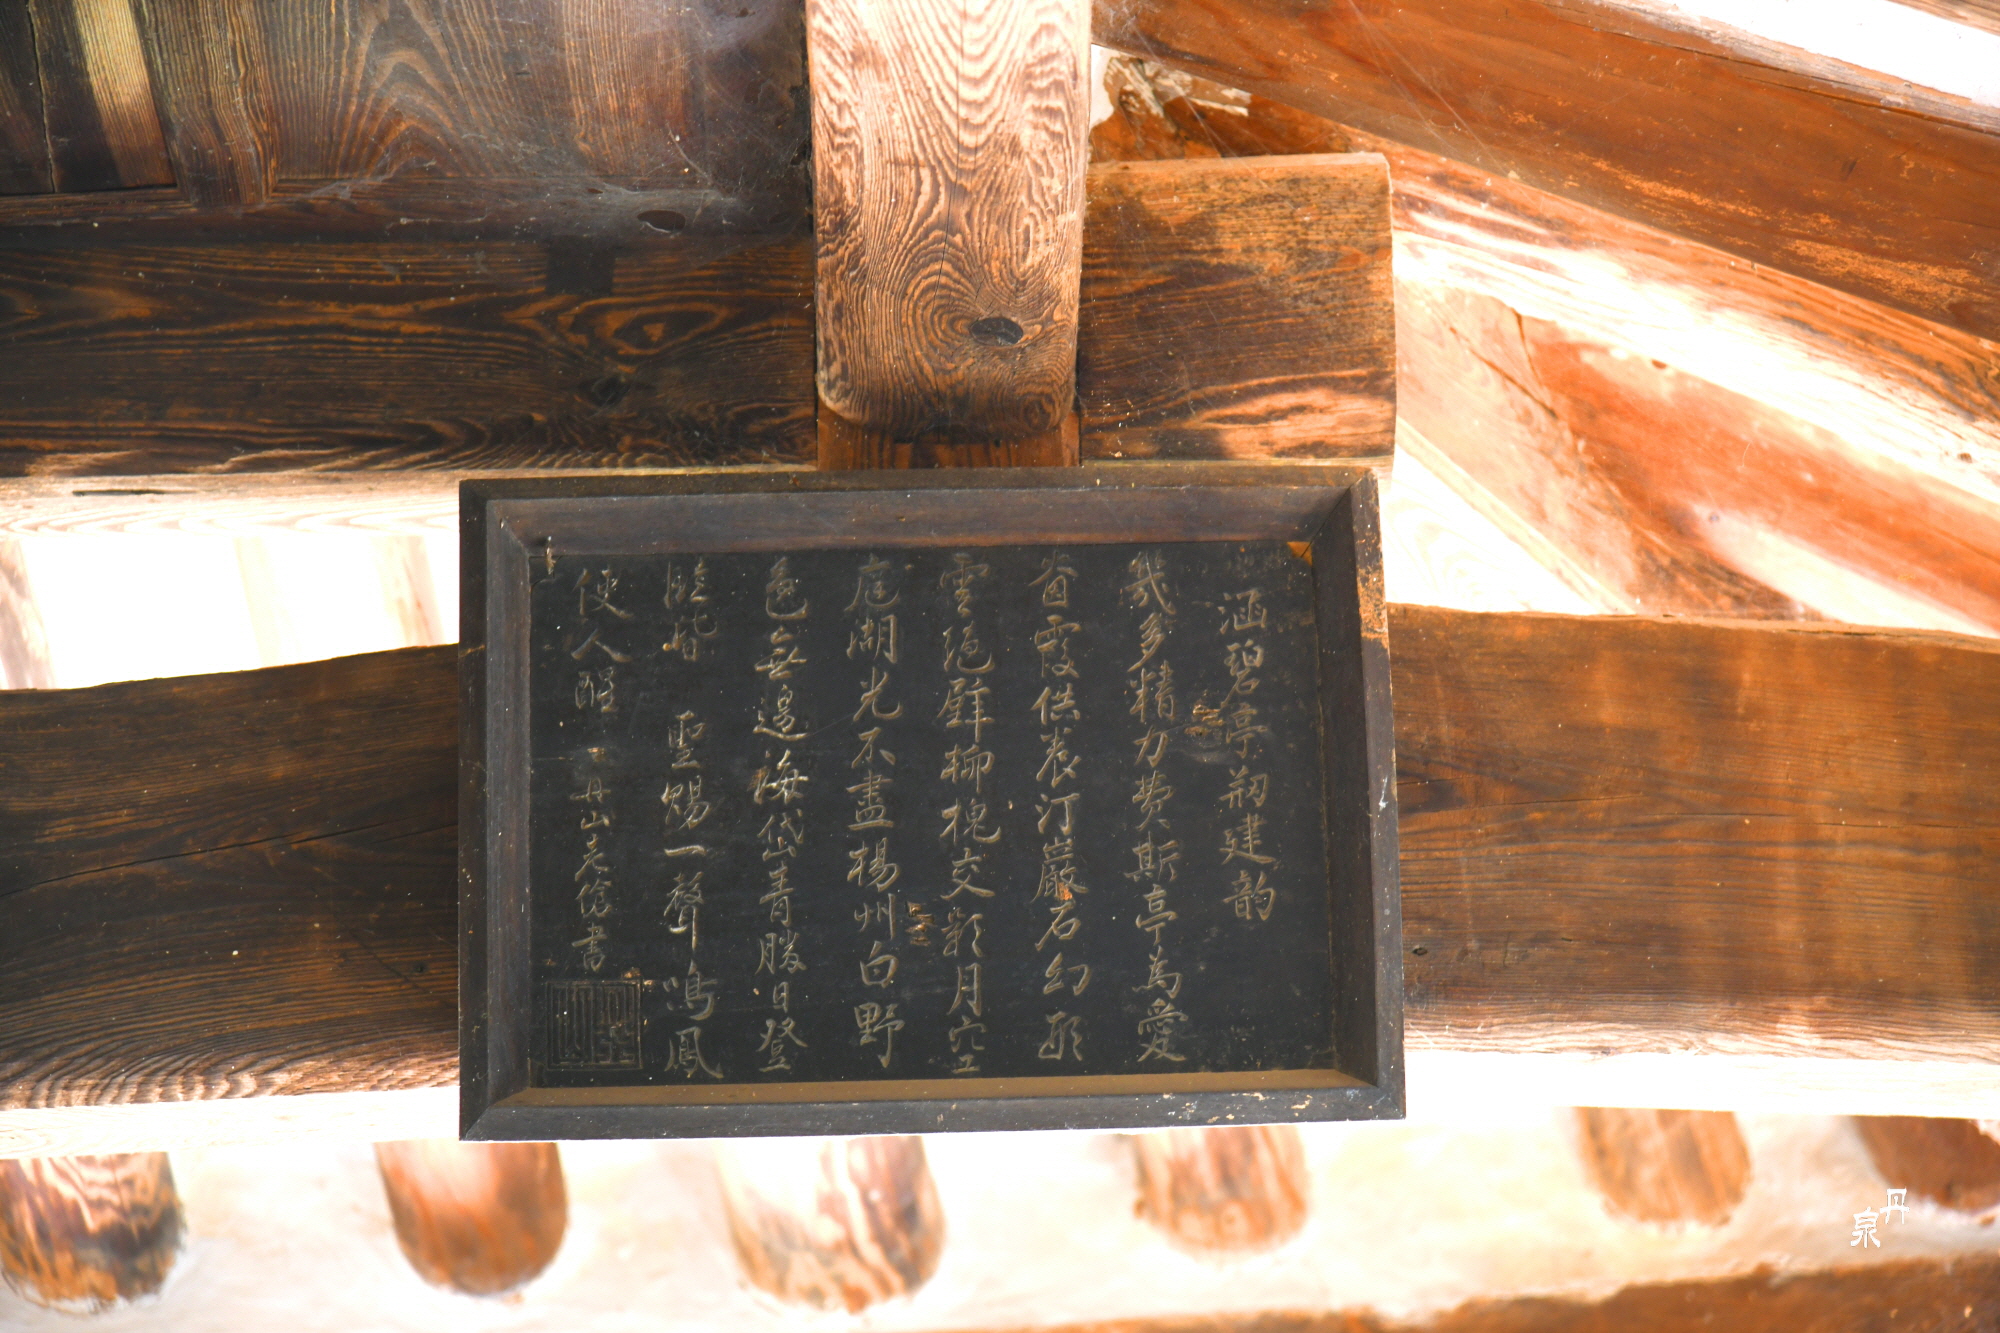 涵碧亭刱建韵
幾多精力費斯亭為愛
眷霞供養汀巖石幻形
雲絕壁柳槐交影月穴空
庭湖光不盡楊州白野
色無邊海岱青勝日登
臨皆聖賜一聲鳴鳳
使人醒
丹山老傖書
丹泉